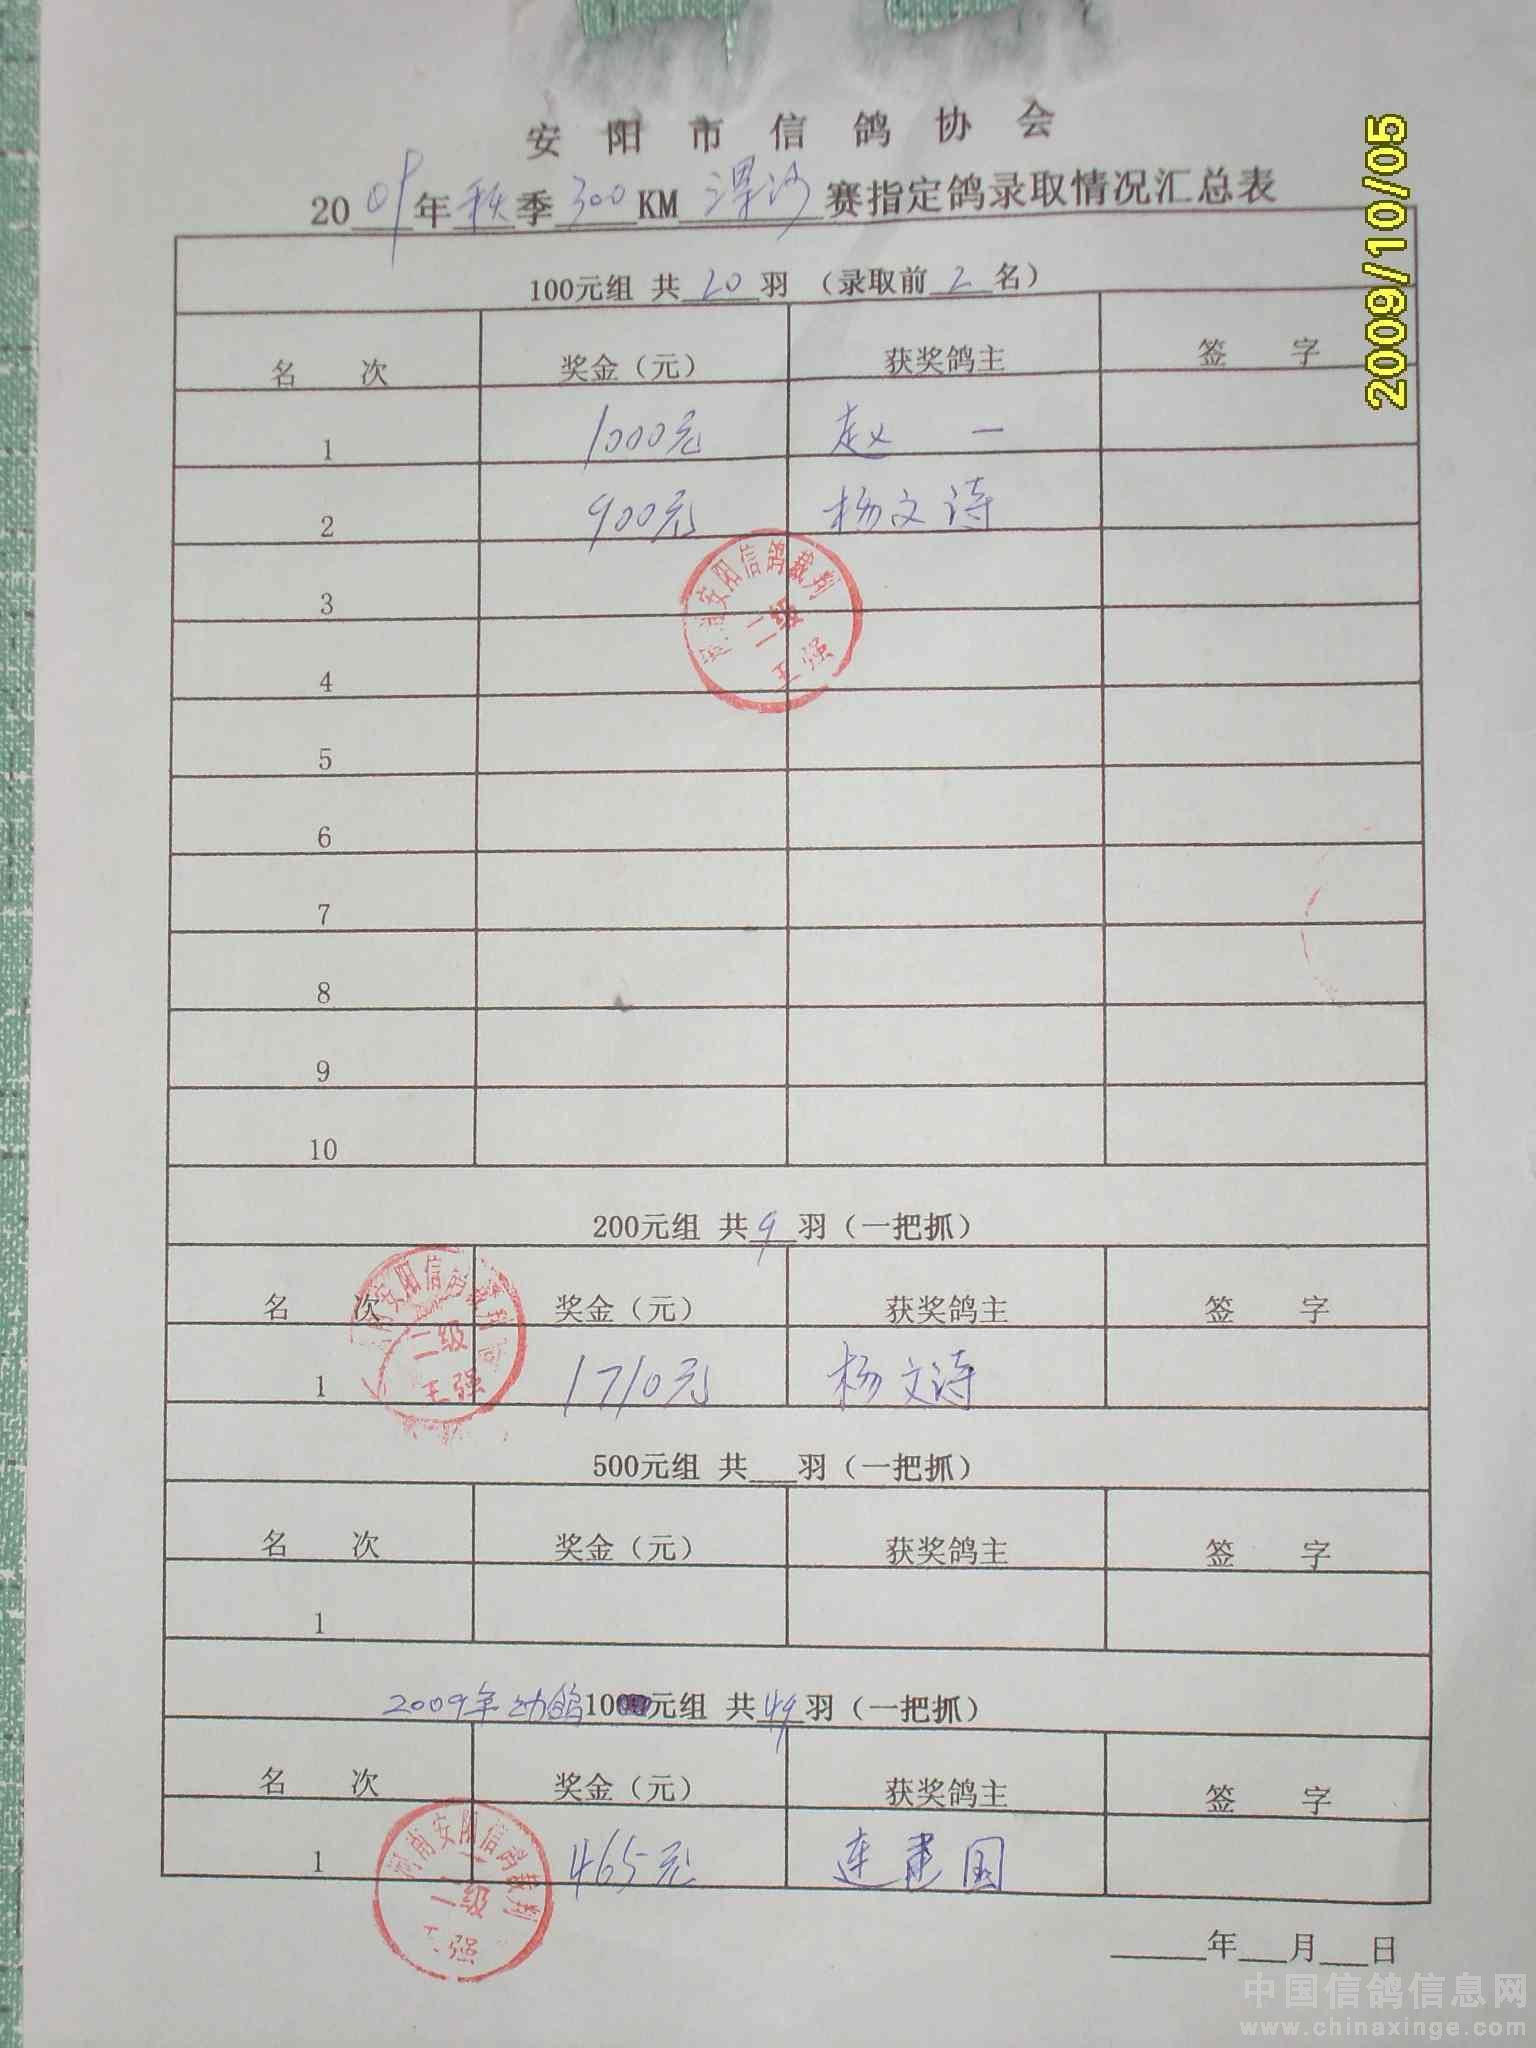 安阳市信鸽协会
2009年秋季300KM漯河赛指定鸽录取情况汇总表
2009/10/05
100元组 共20羽 （录取前2名）
名 次 奖金（元） 获奖鸽主 签 字
1 1000元 赵 一
2 900元 杨文诗
3
河南安阳信鸽裁判
二级
王强
4
5
6
7
8
9
10
200元组 共9羽（一把抓）
名 次 奖金（元） 获奖鸽主 签 字
安阳信鸽裁判
二级
王强
1 1710元 杨文诗
500元组 共___羽（一把抓）
名 次 奖金（元） 获奖鸽主 签 字
1
2009年幼鸽10元组 共49羽（一把抓）
名 次 奖金（元） 获奖鸽主 签 字
1 465元 连建国
河南安阳信鸽裁判
二级
王强
______年___月___日
中国信鸽信息网
www.chinaxinge.com